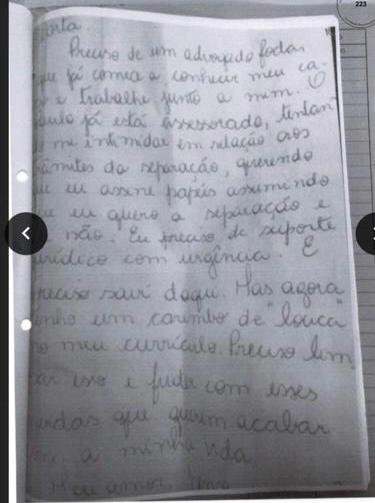 223
Preciso de um advogado foda,
que já comece a conhecer meu ca-
e trabalhe junto a mim. O
já está assessorado, tentan
me intimidar em relação aos
trâmites da separação, querendo
que eu assine papéis assumindo
que eu quero a separação e
não. Eu preciso de suporte
jurídico com urgência. E
preciso sair daqui. Mas agora
tenho um carimbo de "louca"
no meu currículo. Preciso lim
par isso e fuder com esses
que querem acabar
com a minha vida.
Meu amor,